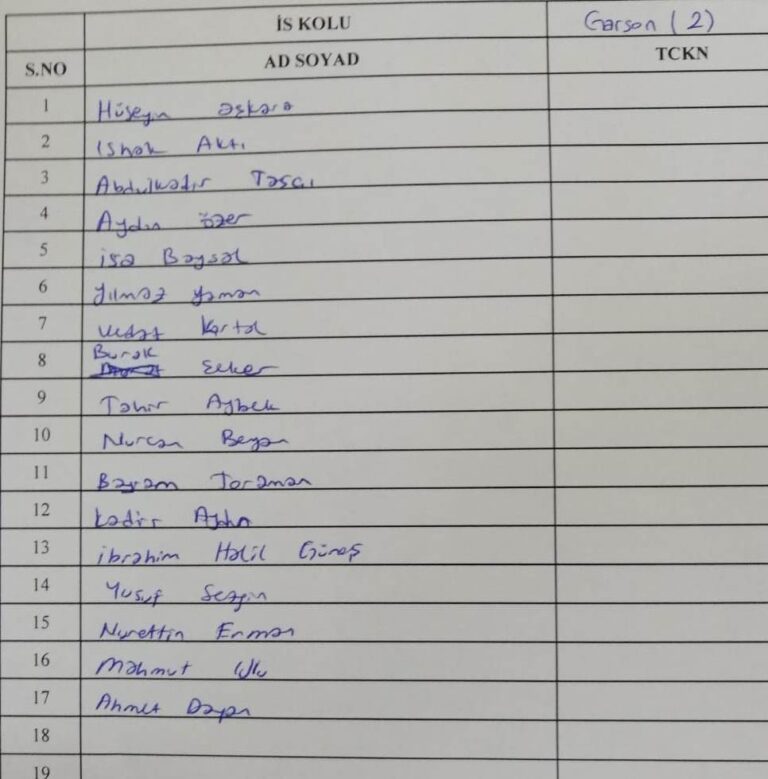 İS KOLU Garson (2)
S.NO AD SOYAD TCKN
1 Hüseyin Aşkara
2 Ishak Aktı
3 Abdulkadir Taşçı
4 Aydın özer
5 isa Baysal
6 Yılmaz Yaman
7 Vedat Kartal
8 Burak Şeker
9 Tahir Aybek
10 Nurcan Beyan
11 Bayram Toraman
12 Kadir Aydın
13 ibrahim Halil Güneş
14 Yusuf Sezgin
15 Nurettin Erman
16 Mahmut Ulu
17 Ahmet Dayan
18
19